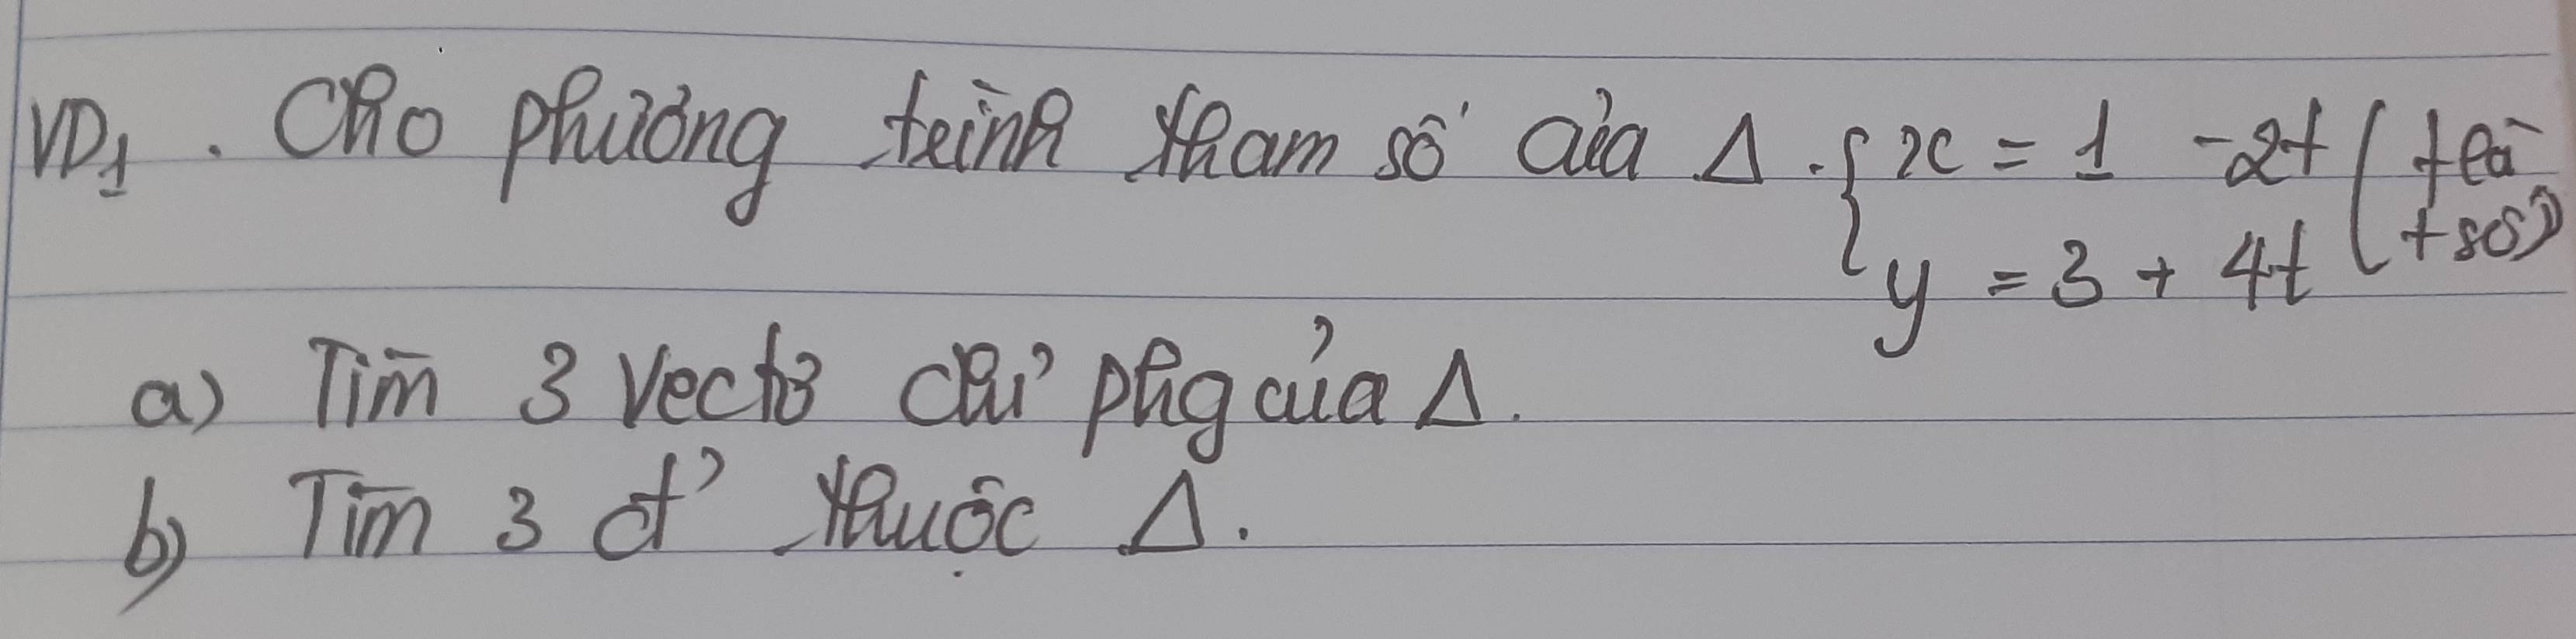 VD₁. Cho phương trình tham số của Δ. { x = 1 - 2t (t là
y = 3 + 4t t số)
a) Tìm 3 vectơ chỉ phg của Δ.
b) Tìm 3 đ' thuộc Δ.